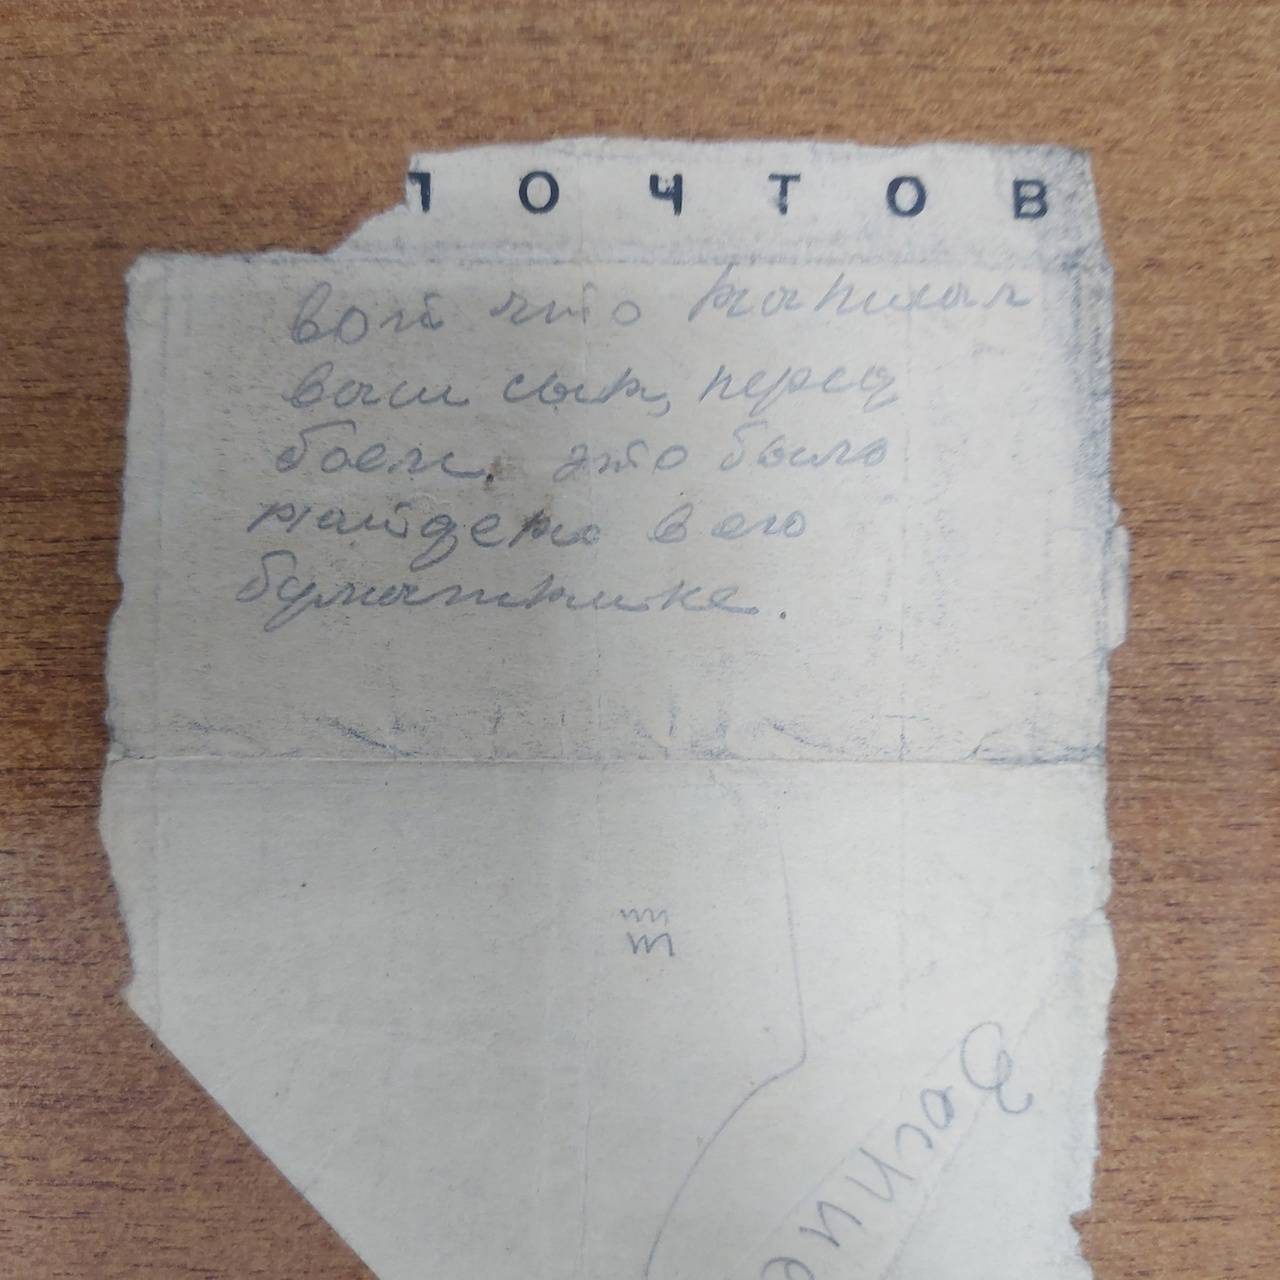 ПОЧТОВ
вот что написал
ваш сын, перед
боем. это было
найдено в его
бумажнике.